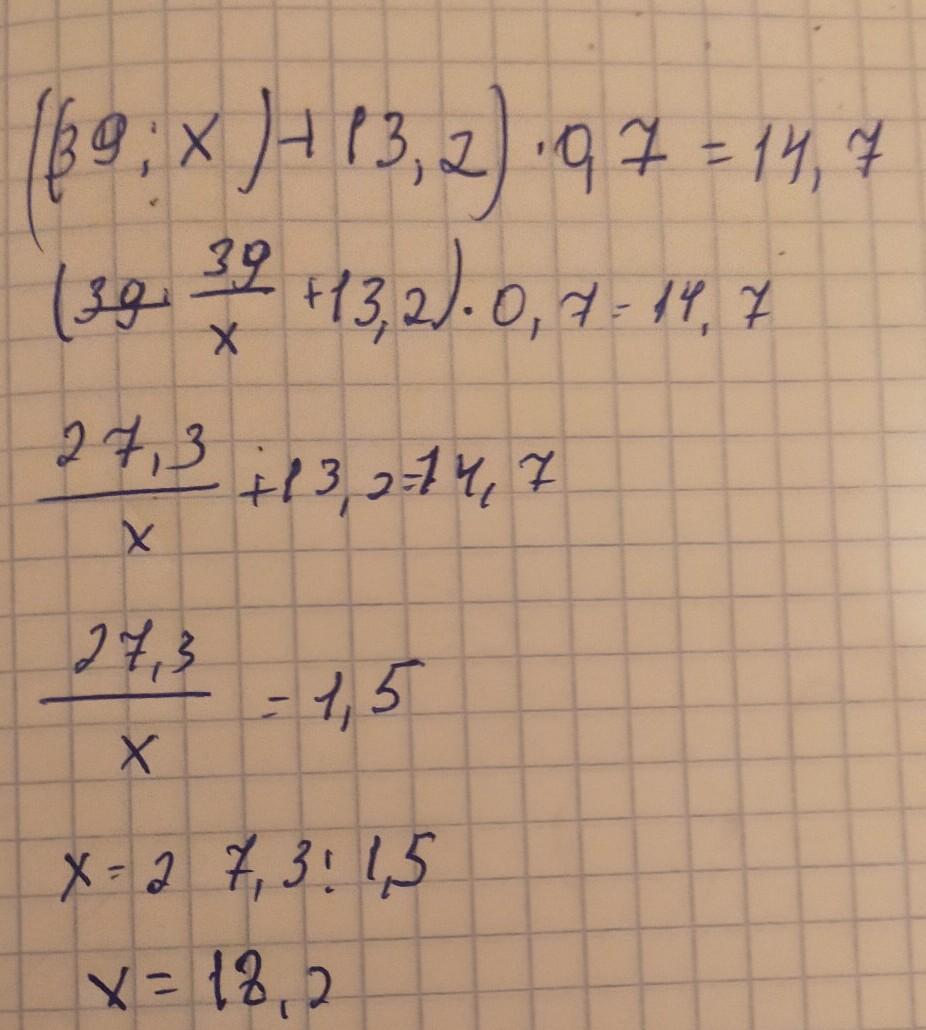 ((39 : x) + 13,2) · 0,7 = 14,7
(39 · 39/x + 13,2) · 0,7 = 14,7
27,3/x + 13,2 = 14,7
27,3/x = 1,5
x = 2 7,3 : 1,5
x = 18,2